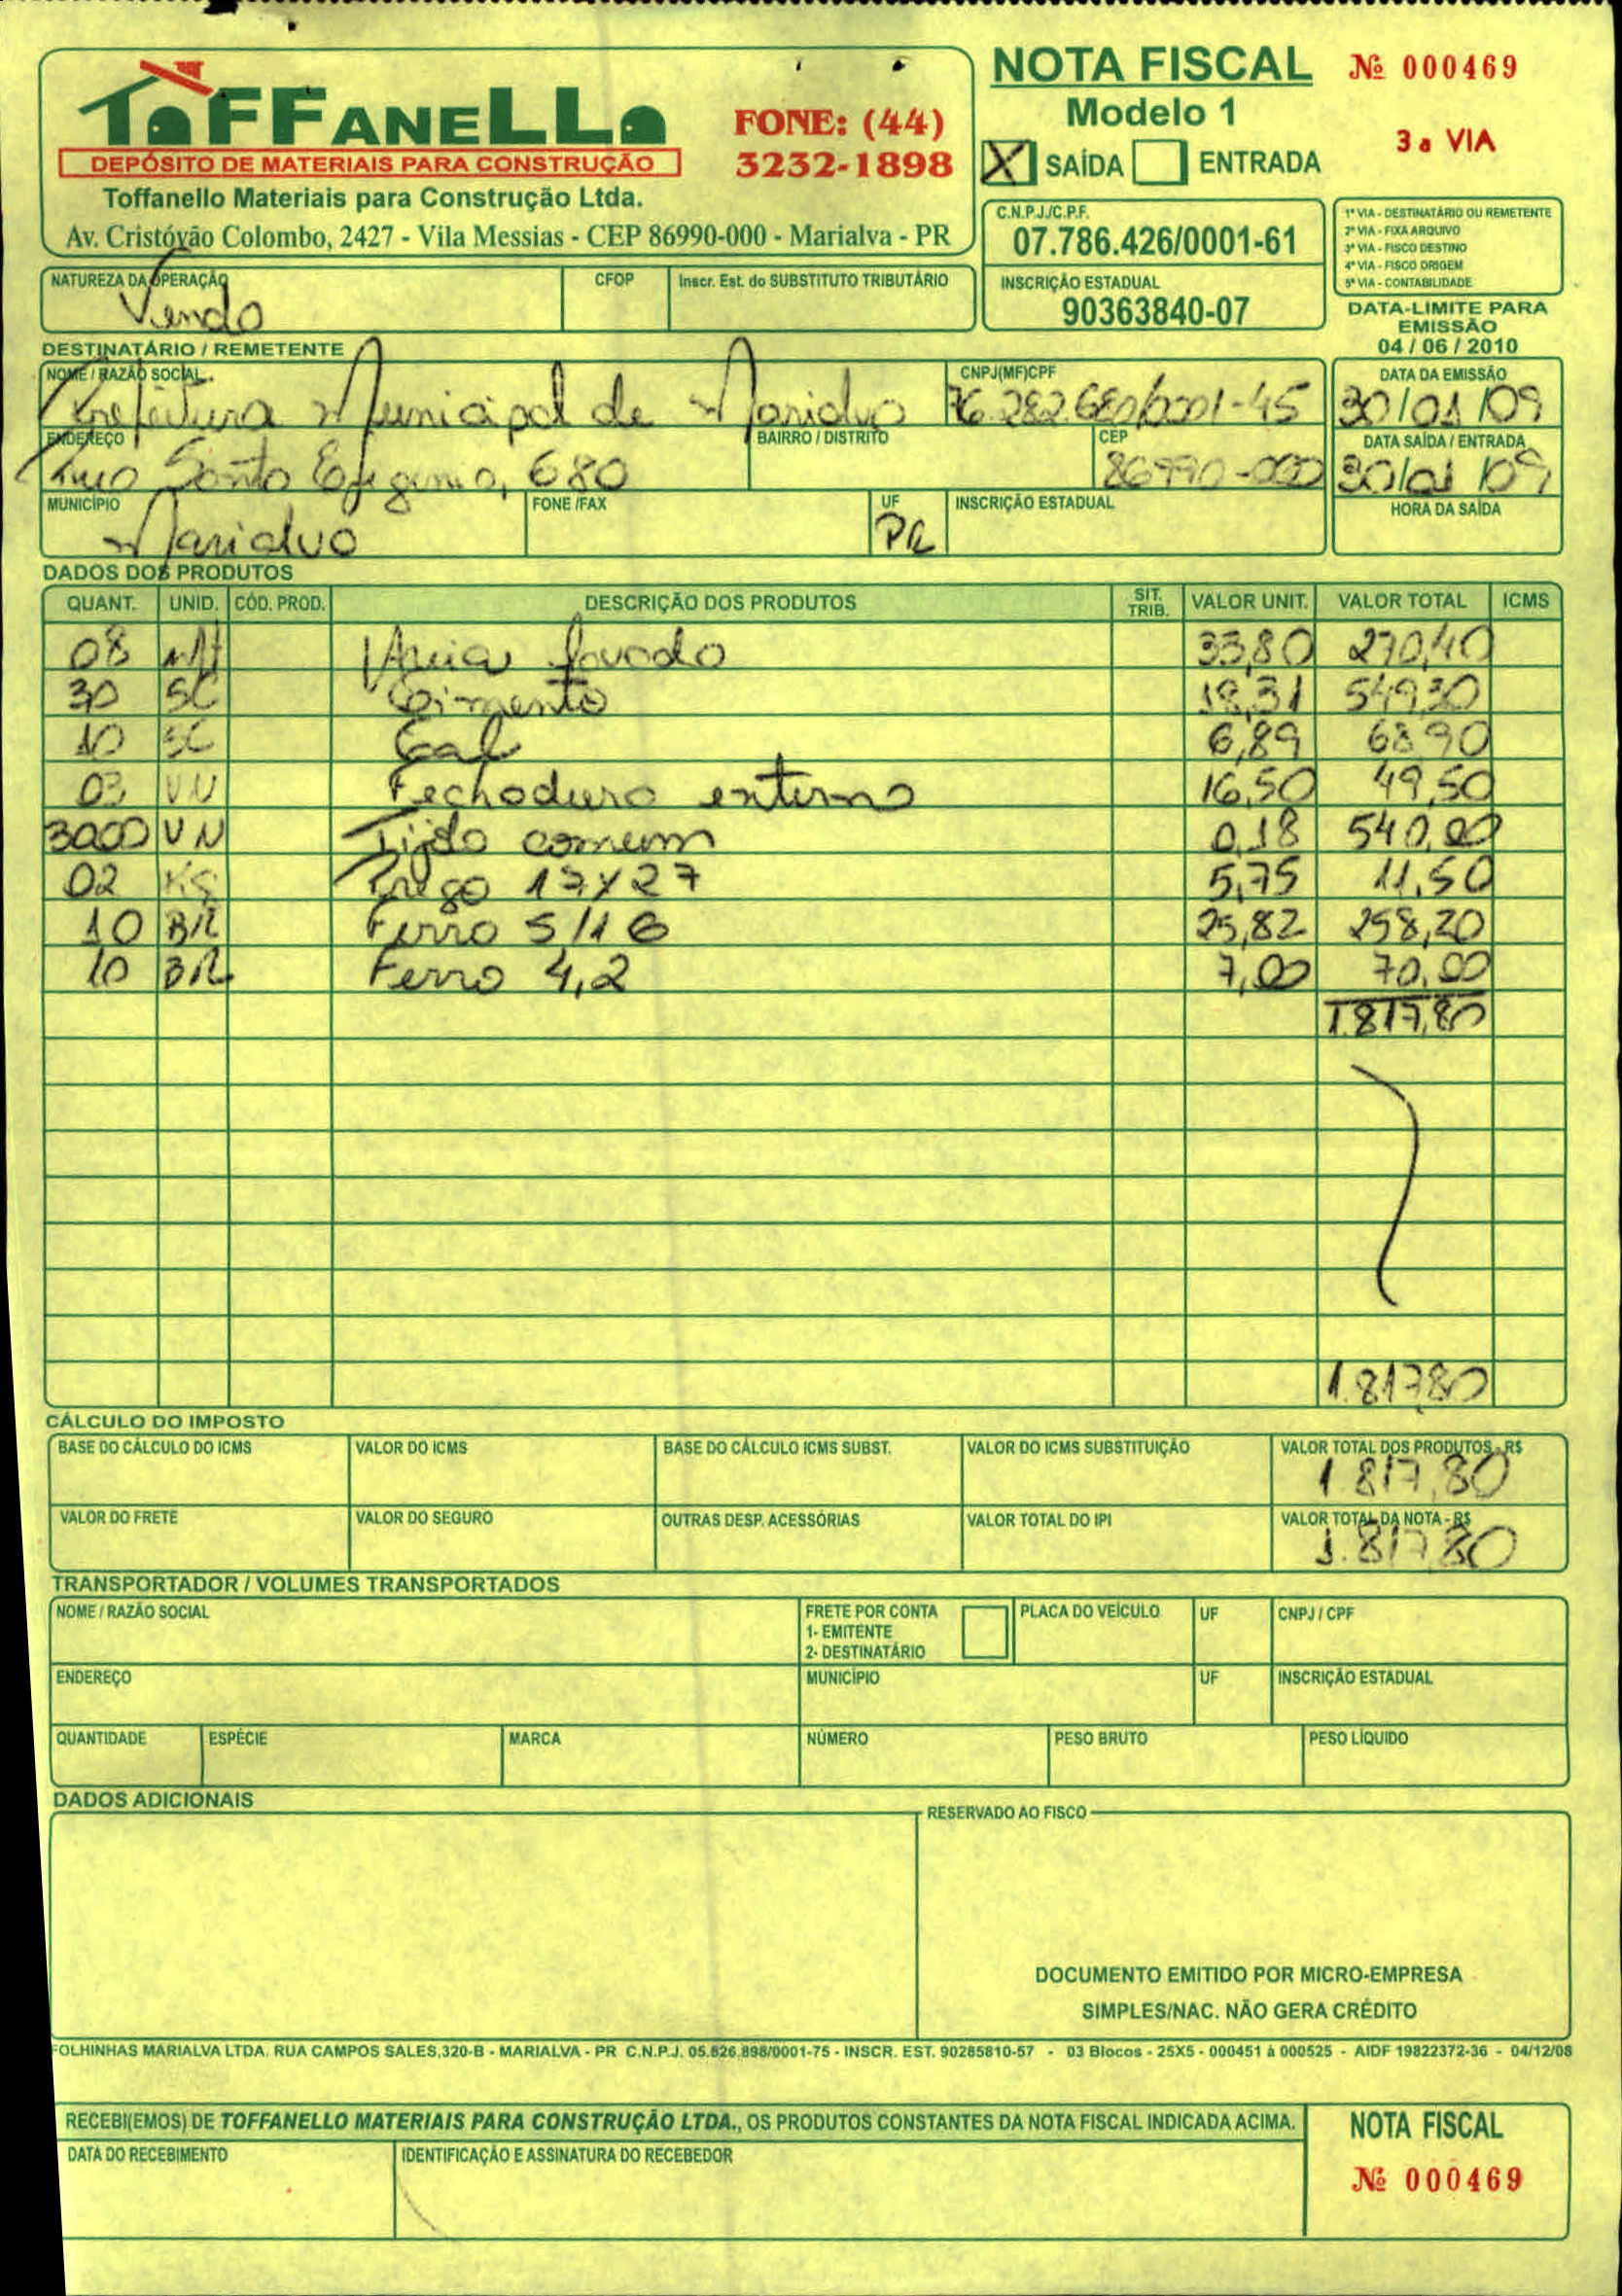 NOTA FISCAL Nº 000469
Modelo 1
3a VIA
X SAÍDA ENTRADA
TOFFANELLO
DEPÓSITO DE MATERIAIS PARA CONSTRUÇÃO
FONE: (44)
3232-1898
Toffanello Materiais para Construção Ltda.
Av. Cristóvão Colombo, 2427 - Vila Messias - CEP 86990-000 - Marialva - PR
C.N.P.J./C.P.F.
07.786.426/0001-61
INSCRIÇÃO ESTADUAL
90363840-07
1ª VIA - DESTINATÁRIO OU REMETENTE
2ª VIA - FIXA ARQUIVO
3ª VIA - FISCO DESTINO
4ª VIA - FISCO ORIGEM
5ª VIA - CONTABILIDADE
DATA-LIMITE PARA
EMISSÃO
04 / 06 / 2010
NATUREZA DA OPERAÇÃO CFOP Inscr. Est. do SUBSTITUTO TRIBUTÁRIO
Venda
DESTINATÁRIO / REMETENTE
NOME / RAZÃO SOCIAL CNPJ(MF)CPF DATA DA EMISSÃO
Prefeitura Municipal de Marialva 76.282.680/0001-45 30/01/09
ENDEREÇO BAIRRO / DISTRITO CEP DATA SAÍDA / ENTRADA
Rua Santa Efigenia, 680 86990-000 30/01/09
MUNICÍPIO FONE /FAX UF INSCRIÇÃO ESTADUAL HORA DA SAÍDA
Marialva PR
DADOS DOS PRODUTOS
QUANT. UNID. CÓD. PROD. DESCRIÇÃO DOS PRODUTOS SIT. TRIB. VALOR UNIT. VALOR TOTAL ICMS
08 Areia lavada 33,80 270,40
30 SC Cimento 18,31 549,30
10 SC Cal 6,89 68,90
03 UN Fechadura externa 16,50 49,50
3000 UN Tijolo comum 0,18 540,00
02 KG Prego 17x27 5,75 11,50
10 BR Ferro 5/16 25,82 258,20
10 BR Ferro 4,2 7,00 70,00
1.817,80
1.817,80
CÁLCULO DO IMPOSTO
BASE DO CÁLCULO DO ICMS VALOR DO ICMS BASE DO CÁLCULO ICMS SUBST. VALOR DO ICMS SUBSTITUIÇÃO VALOR TOTAL DOS PRODUTOS - R$
1.817,80
VALOR DO FRETE VALOR DO SEGURO OUTRAS DESP. ACESSÓRIAS VALOR TOTAL DO IPI VALOR TOTAL DA NOTA - R$
1.817,80
TRANSPORTADOR / VOLUMES TRANSPORTADOS
NOME / RAZÃO SOCIAL FRETE POR CONTA PLACA DO VEÍCULO UF CNPJ / CPF
1- EMITENTE
2- DESTINATÁRIO
ENDEREÇO MUNICÍPIO UF INSCRIÇÃO ESTADUAL
QUANTIDADE ESPÉCIE MARCA NÚMERO PESO BRUTO PESO LÍQUIDO
DADOS ADICIONAIS
RESERVADO AO FISCO
DOCUMENTO EMITIDO POR MICRO-EMPRESA
SIMPLES/NAC. NÃO GERA CRÉDITO
FOLHINHAS MARIALVA LTDA. RUA CAMPOS SALES,320-B - MARIALVA - PR C.N.P.J. 05.826.898/0001-75 - INSCR. EST. 90285810-57 - 03 Blocos - 25X5 - 000451 à 000525 - AIDF 19822372-36 - 04/12/08
RECEBI(EMOS) DE TOFFANELLO MATERIAIS PARA CONSTRUÇÃO LTDA., OS PRODUTOS CONSTANTES DA NOTA FISCAL INDICADA ACIMA.
DATA DO RECEBIMENTO IDENTIFICAÇÃO E ASSINATURA DO RECEBEDOR
NOTA FISCAL
Nº 000469